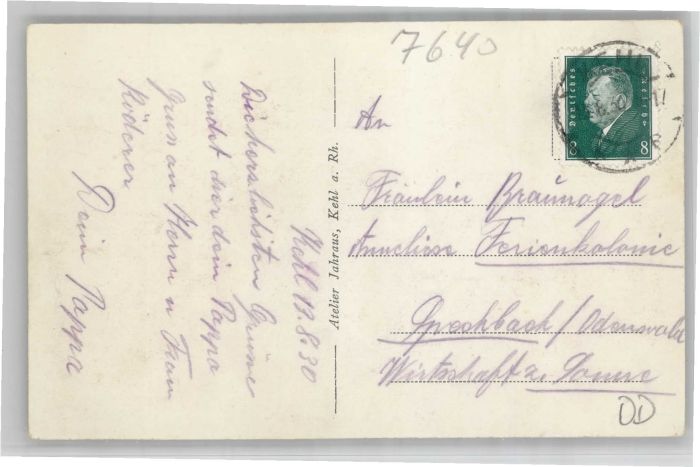 7640
Kehl 19.8.30
Die herzlichsten Grüsse
sendet dir dein Pappa
Gruss an Herrn u Frau
Röderer
Dein Pappa
Atelier Jahraus, Kehl a. Rh.
Deutsches Reich
8 8
An
Fräulein Braunagel
Anneliese Ferienkolonie
/ Odenwald
Wirtschaft z. Sonne
DD